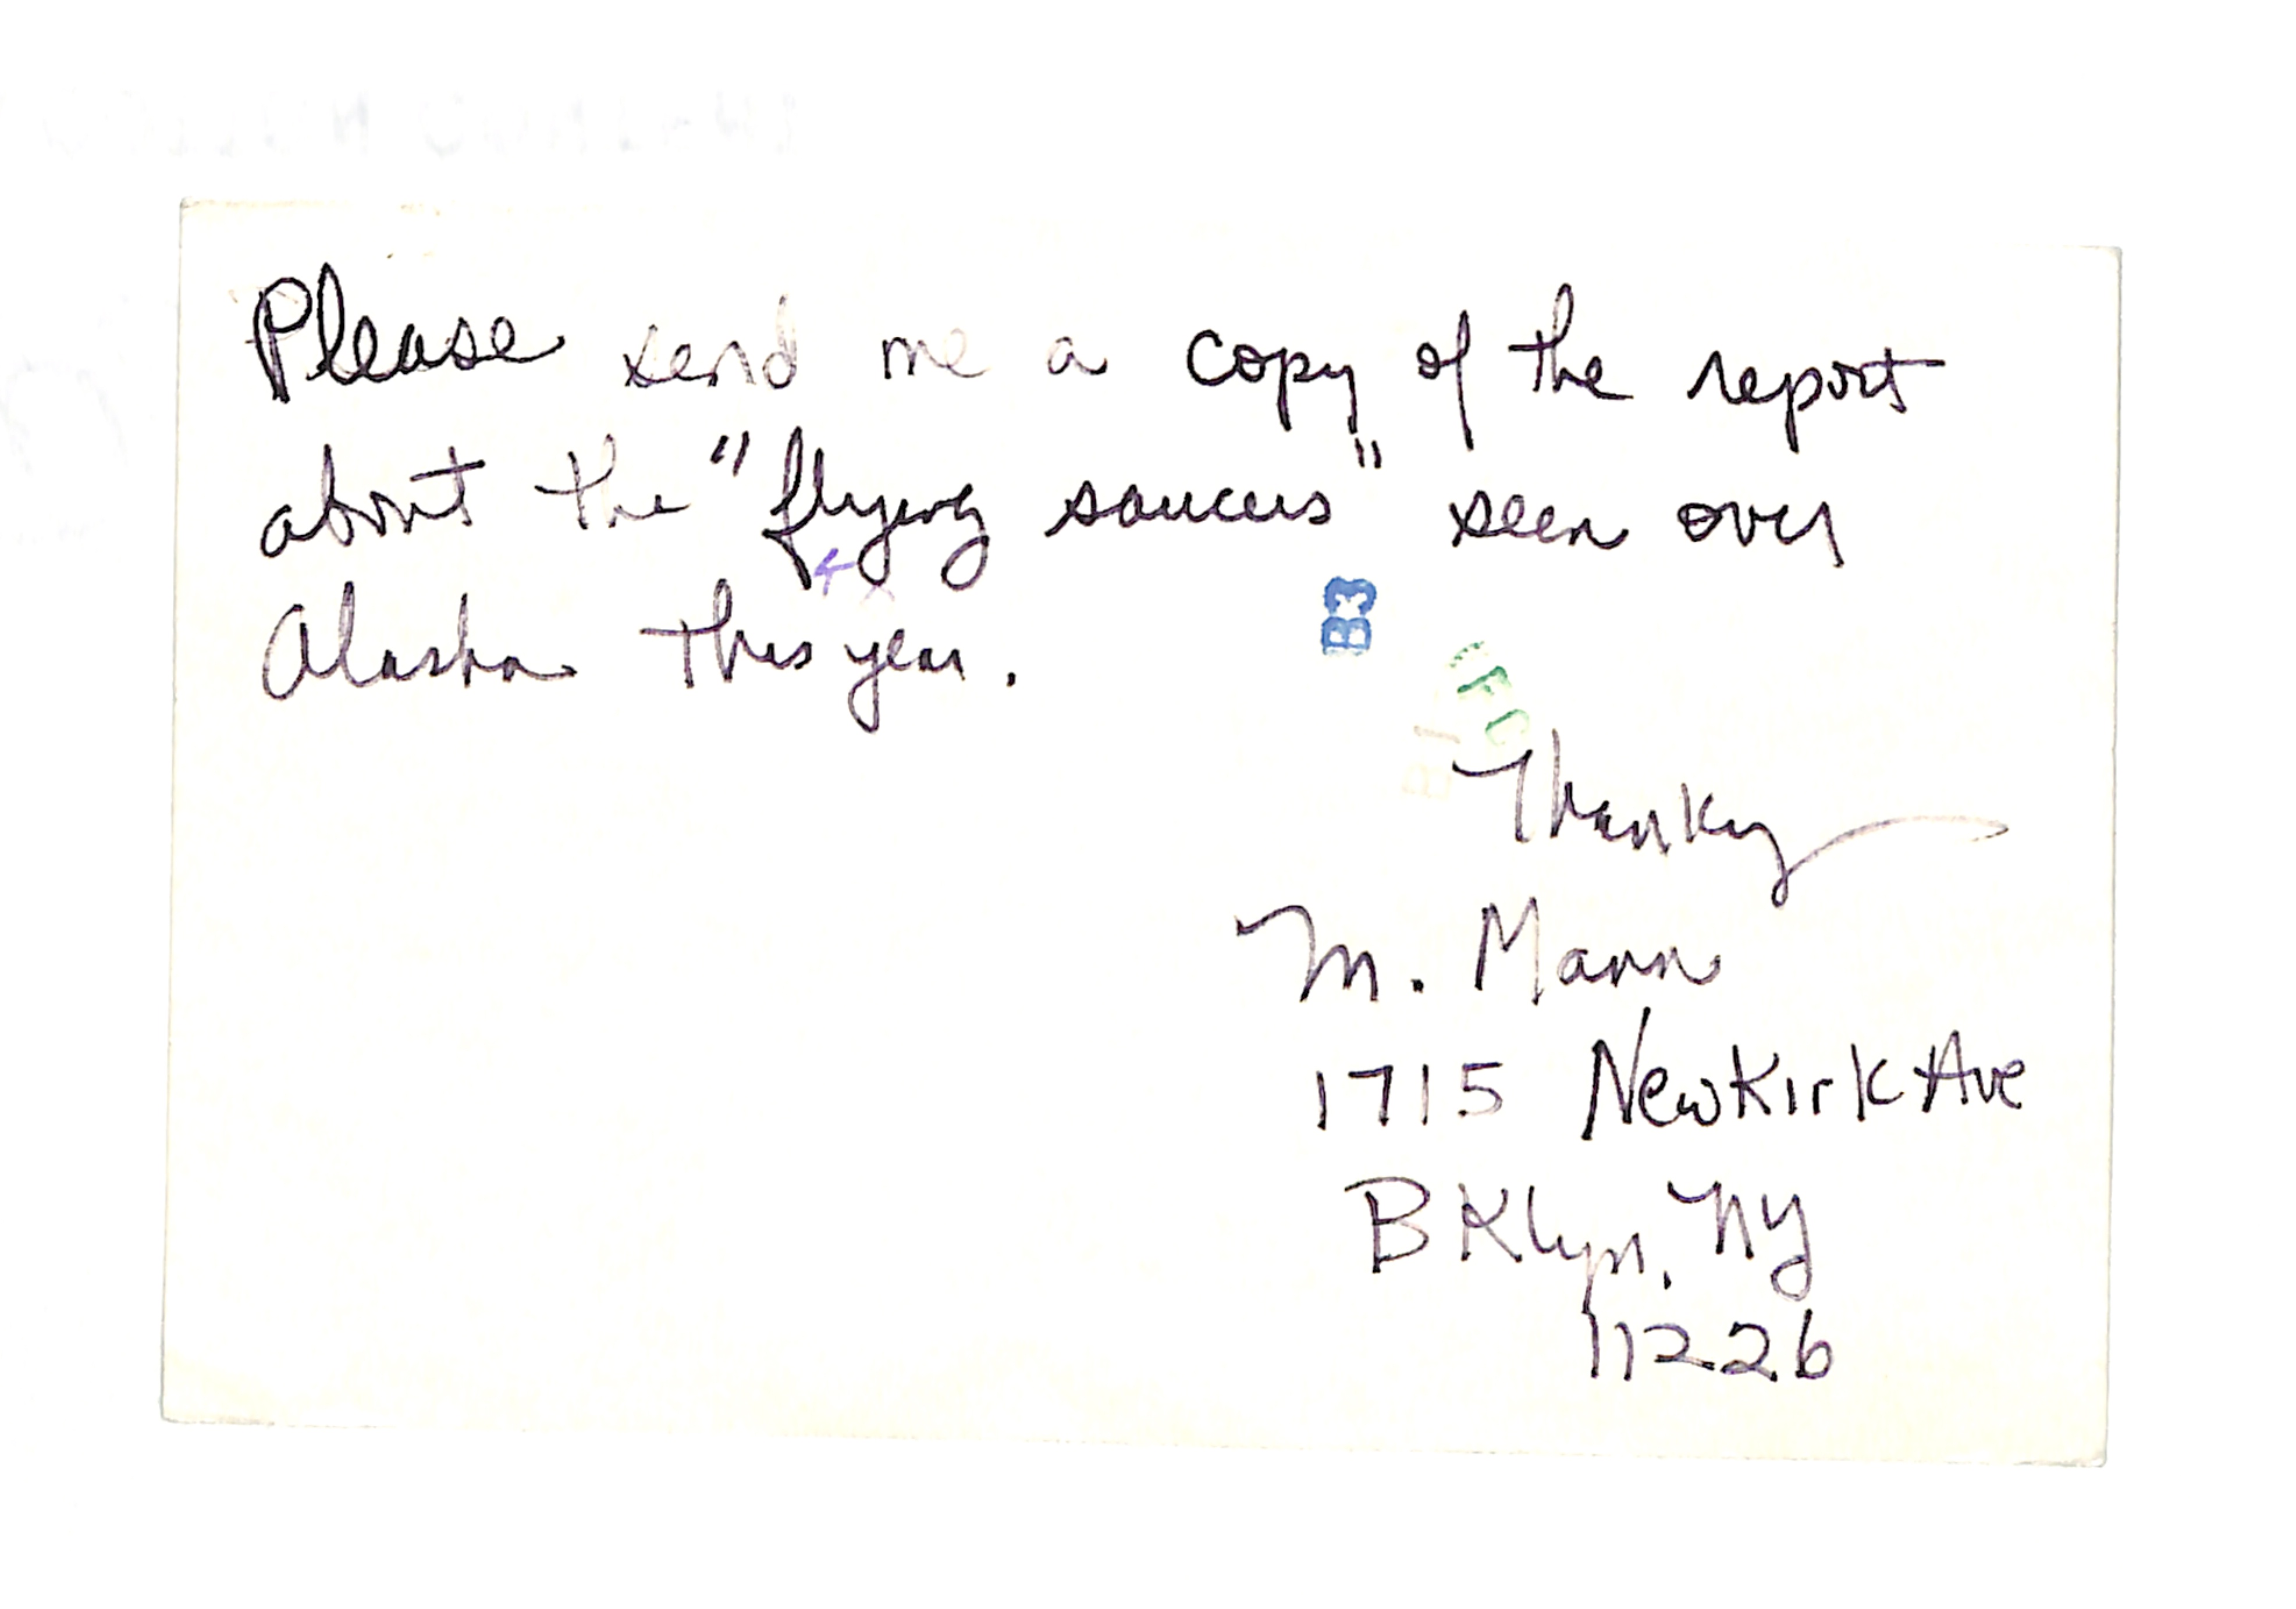 Please send me a copy of the report
about the "flying saucers" seen over
Alaska this year.
B3
FC
B1
Thanks
M. Mann
1715 Newkirk Ave
BKlyn, NY
11226